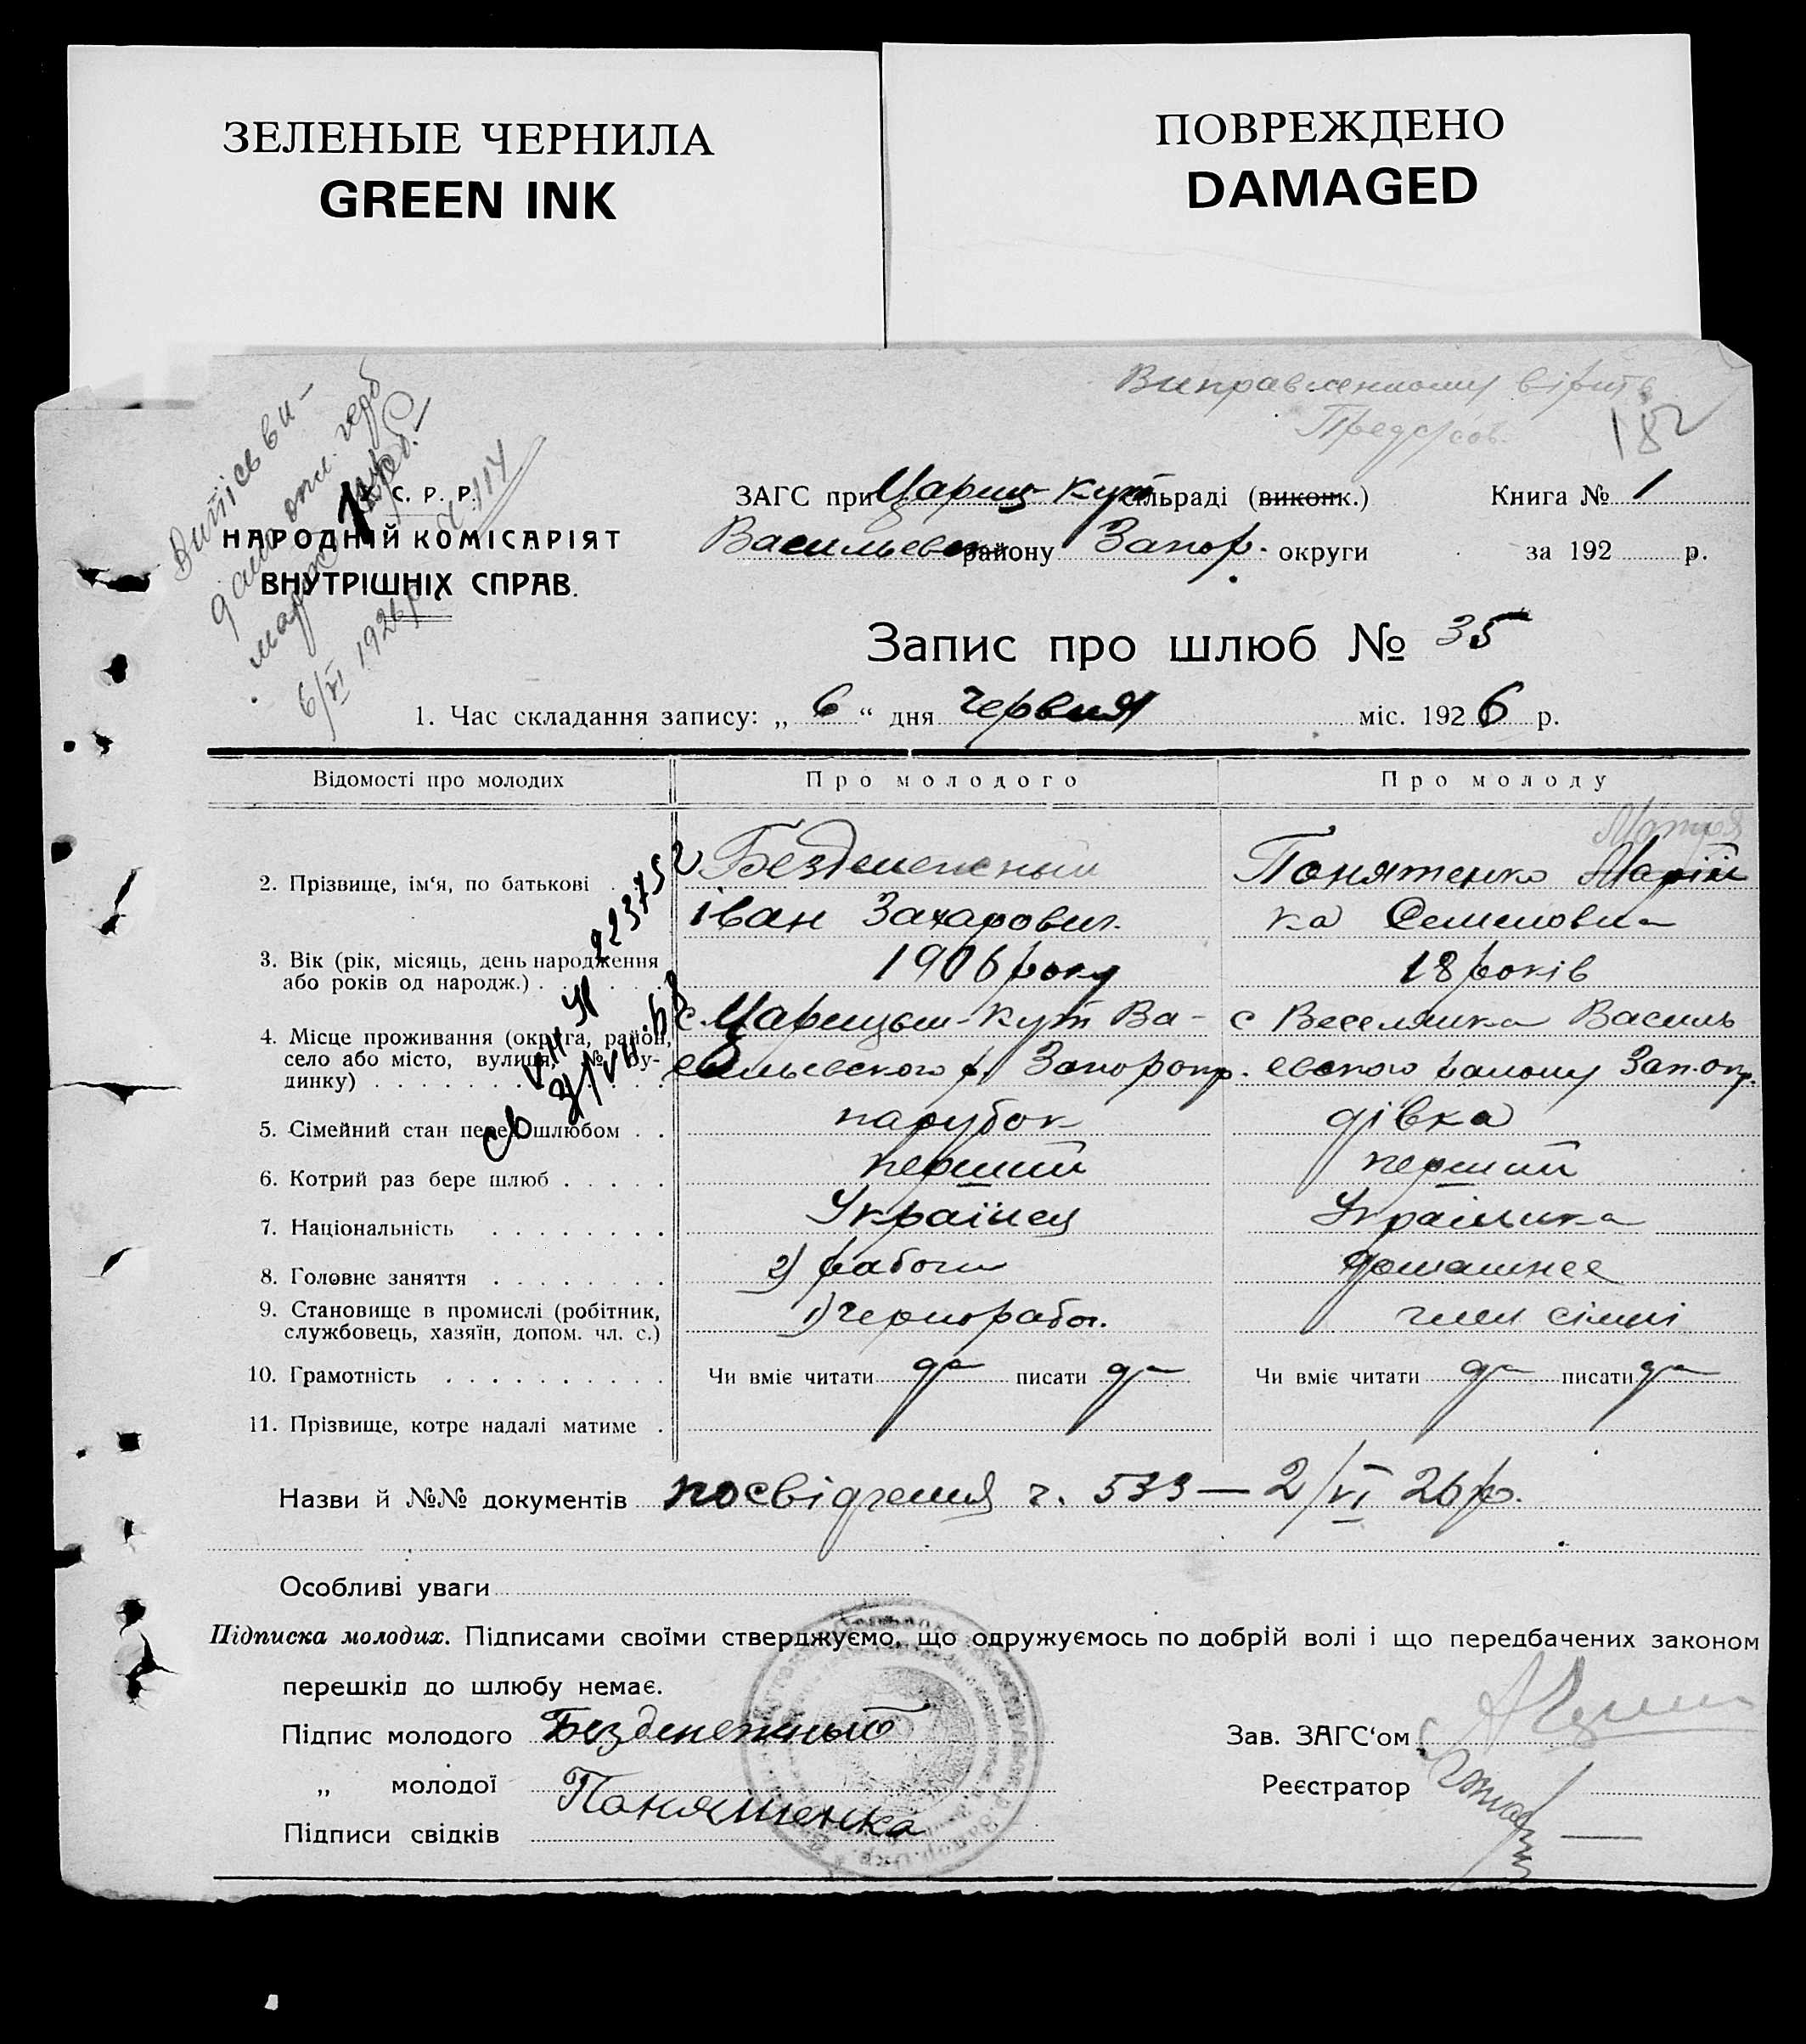 ЗЕЛЕНЫЕ ЧЕРНИЛА
GREEN INK
ПОВРЕЖДЕНО
DAMAGED
Виправленному вірить
182
У. С. Р. Р.
НАРОДНІЙ КОМІСАРІЯТ
ВНУТРІШНІХ СПРАВ.
6/VI 1926р
ЗАГС при Цариц-Кут сільраді (виконк.) Книга № 1
Васильевск району Запор. округи за 192 р.
Запис про шлюб № 35
1. Час складання запису: „ 6 “ дня червня міс. 1926 р.
Відомості про молодих Про молодого Про молоду
2. Прізвище, ім‘я, по батькові . . Безденежный Понятенко Марій
іван Захарович. ка Семеновна
3. Вік (рік, місяць, день народження
або років од народж.) . . . . . 1906 року 18 років
4. Місце проживання (округа, район, с. Царицын-Кут Ва- с Веселянка Василь
село або місто, вулиця, № бу-
динку) . . . . . . сильевского р. Запорокр. евского району Зап.окр.
5. Сімейний стан перед шлюбом . . парубок дівка
6. Котрий раз бере шлюб . . . . . перший перший
7. Національність . . . . . . . . Українец Українка
8. Головне заняття . . . . . . . . 2) рабочий домашнее
9. Становище в промислі (робітник,
службовець, хазяїн, допом. чл. с.) 1) чернорабоч. член сімьі
10. Грамотність . . . . . . . . . . Чи вміє читати да писати да Чи вміє читати да писати да
11. Прізвище, котре надалі матиме .
Назви й №№ документів посвідчення ч. 533 — 2/VI 26 р.
Особливі уваги
Підписка молодих. Підписами своїми стверджуємо, що одружуємось по добрій волі і що передбачених законом
перешкід до шлюбу немає.
Підпис молодого Безденежный Зав. ЗАГС‘ом
„ молодої Понятенка Реєстратор
Підписи свідків